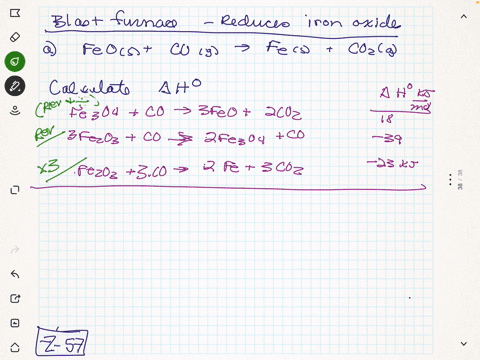 Blast furnace - Reduces iron oxide
a) FeO(s) + CO(g) → Fe(s) + CO₂(g)
Calculate ΔH°
ΔH° kJ/mol
(Rev
Fe₃O₄ + CO → 3FeO + 2CO₂ 18
Rev 3Fe₂O₃ + CO → 2Fe₃O₄ + CO -39
x3 Fe₂O₃ + 3CO → 2Fe + 3CO₂ -23 kJ
Z-57
38 / 38